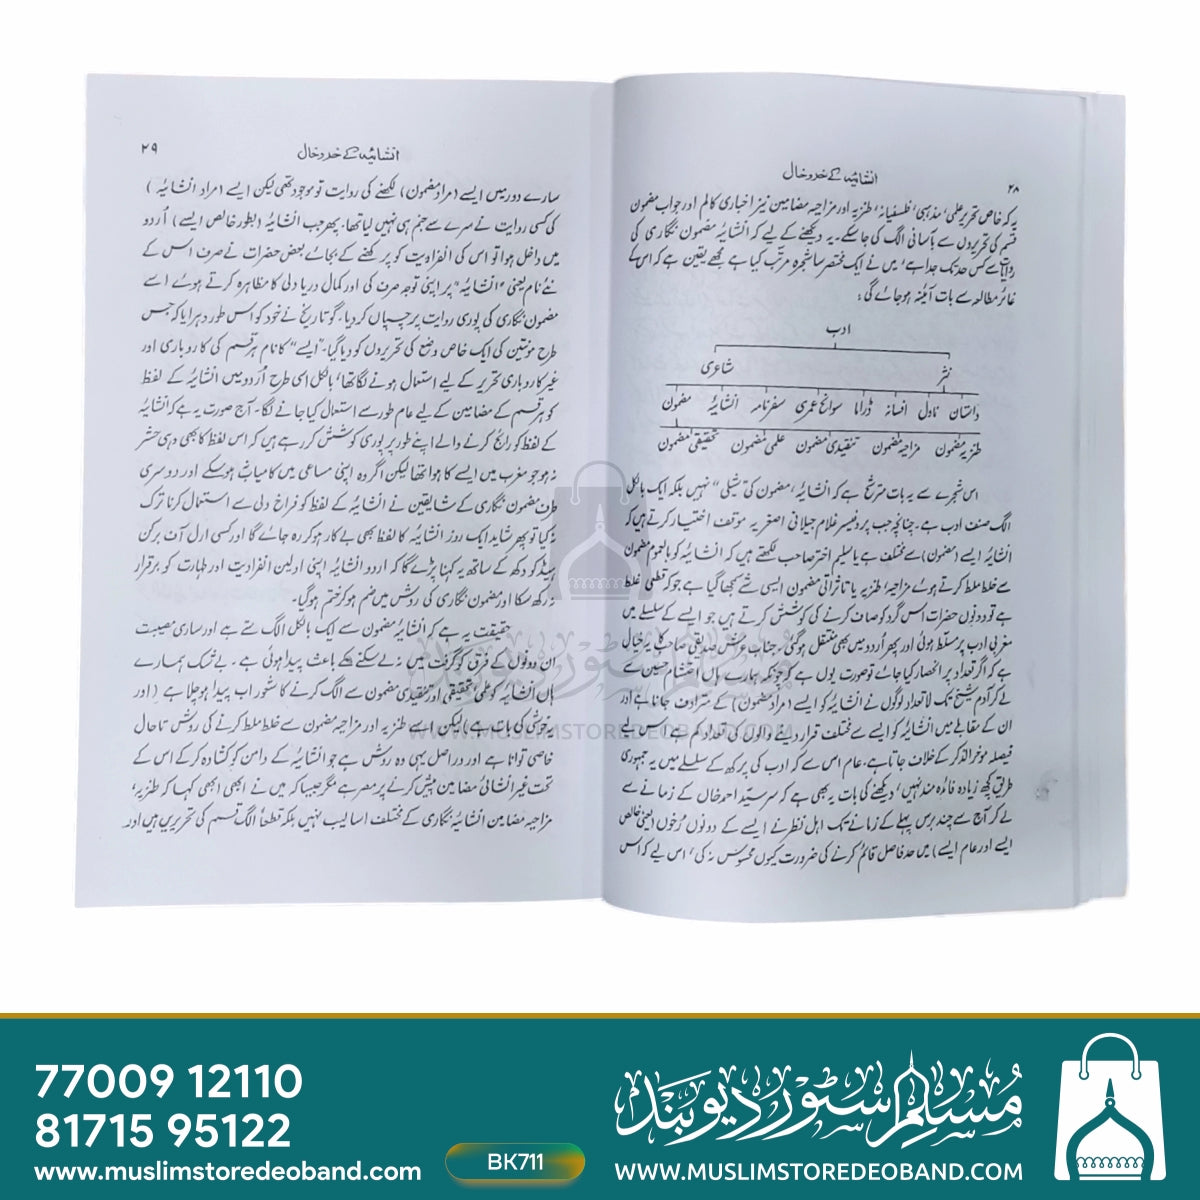 ۲۸
انشائیہ کے خدوخال
یہ کہ خاص تحریر علمی، مذہبی، فلسفیانہ، طنزیہ اور مزاحیہ مضامین نیز اخباری کالم اور جواب مضمون
قسم کی تحریروں سے بآسانی الگ کی جا سکے۔ یہ دیکھنے کے لیے کہ انشائیہ مضمون نگاری کی
روایت سے کس حد تک جدا ہے، میں نے ایک مختصر سا شجرہ مرتب کیا ہے مجھے یقین ہے کہ اس کے
غائر مطالعہ سے بات آئینہ ہو جائے گی:
ادب
نثر شاعری
داستان ناول افسانہ ڈراما سوانح عمری سفرنامہ انشائیہ مضمون
طنزیہ مضمون مزاحیہ مضمون تنقیدی مضمون علمی مضمون تحقیقی مضمون
اس شجرے سے یہ بات مترشح ہے کہ انشائیہ، مضمون کی شیلی" نہیں بلکہ ایک بالکل
الگ صنف ادب ہے۔ چنانچہ جب پروفیسر غلام جیلانی اصغر یہ موقف اختیار کرتے ہیں کہ
انشائیہ ایسے (مضمون) سے مختلف ہے یا سلیم اختر صاحب لکھتے ہیں کہ انشائیہ کو بالعموم مضمون
سے خلط ملط کرتے ہوئے مزاحیہ، طنزیہ یا تاثراتی مضمون ایسی شے سمجھا گیا ہے جو کہ قطعی غلط
ہے تو دونوں حضرات اس گرد کو صاف کرنے کی کوشش کرتے ہیں جو ایسے کے سلسلے میں
مغربی ادب پر مسلط ہوئی اور پھر اُردو میں بھی منتقل ہو گئی۔ جناب عرش صدیقی صاحب کا یہ خیال
ہے کہ اگر تعداد پر انحصار کیا جائے تو صورت یوں ہے کہ چونکہ ہمارے ہاں احتشام حسین سے
لے کر آدم شیخ تک لاتعداد لوگوں نے انشائیہ کو ایسے (مراد مضمون) کے مترادف جانا ہے اور
ان کے مقابلے میں انشائیہ کو ایسے سے مختلف قرار دینے والوں کی تعداد کم ہے اس لیے
فیصلہ موخر الذکر کے خلاف جاتا ہے۔ عام اس سے کہ ادب کی پرکھ کے سلسلے میں یہ جمہوری
طریق کچھ زیادہ فائدہ مند نہیں، دیکھنے کی بات یہ بھی ہے کہ سر سید احمد خاں کے زمانے سے
لے کر آج سے چند برس پہلے کے زمانے تک اہل نظر نے ایسے کے دونوں رُخوں (یعنی خالص
ایسے اور عام ایسے) میں حد فاصل قائم کرنے کی ضرورت کیوں محسوس نہ کی، اس لیے کہ اس
۲۹
انشائیہ کے خدوخال
سارے دور میں ایسے (مراد مضمون) لکھنے کی روایت تو موجود تھی لیکن ایسے (مراد انشائیہ)
کی کسی روایت نے سرے سے جنم ہی نہیں لیا تھا۔ پھر جب انشائیہ (بطور خالص ایسے) اُردو
میں داخل ہوا تو اس کی انفرادیت کو پرکھنے کے بجائے بعض حضرات نے صرف اس کے
نئے نام یعنی "انشائیہ" پر اپنی توجہ صرف کی اور کمال دریا دلی کا مظاہرہ کرتے ہوئے اسے
مضمون نگاری کی پوری روایت پر چسپاں کر دیا۔ گویا تاریخ نے خود کو اس طور دہرایا کہ جس
طرح مونتین کی ایک خاص وضع کی تحریروں کو دیا گیا۔ "ایسے" کا نام ہر قسم کی کاروباری اور
غیر کاروباری تحریر کے لیے استعمال ہونے لگا تھا، بالکل اسی طرح اُردو میں انشائیہ کے لفظ
کو ہر قسم کے مضامین کے لیے عام طور سے استعمال کیا جانے لگا۔ آج صورت یہ ہے کہ انشائیہ
کے لفظ کو رائج کرنے والے اپنے طور پر پوری کوشش کر رہے ہیں کہ اس لفظ کا بھی وہی حشر
نہ ہو جو مغرب میں ایسے کا ہوا تھا لیکن اگر وہ اپنی مساعی میں کامیاب نہ ہو سکے اور دوسری
طرف مضمون نگاری کے شائقین نے انشائیہ کے لفظ کو فراخ دلی سے استعمال کرنا ترک
نہ کیا تو پھر شاید ایک روز انشائیہ کا لفظ بھی بے کار ہو کر رہ جائے گا اور کسی ارل آف برکن
ہیڈ کو دکھ کے ساتھ یہ کہنا پڑے گا کہ اردو انشائیہ اپنی اولین انفرادیت اور طہارت کو برقرار
نہ رکھ سکا اور مضمون نگاری کی روش میں ضم ہو کر ختم ہو گیا۔
حقیقت یہ ہے کہ انشائیہ مضمون سے ایک بالکل الگ شے ہے اور ساری مصیبت
ان دونوں کے فرق کو گرفت میں نہ لے سکنے کے باعث پیدا ہوئی ہے۔ بے شک ہمارے
ہاں انشائیہ کو علمی، تحقیقی اور تنقیدی مضمون سے الگ کرنے کا شعور اب پیدا ہو چلا ہے (اور
یہ خوشی کی بات ہے) لیکن اسے طنزیہ اور مزاحیہ مضمون سے خلط ملط کرنے کی روش تاحال
خاصی توانا ہے اور دراصل یہی وہ روش ہے جو انشائیہ کے دامن کو کشادہ کر کے اس کے
تحت غیر انشائی مضامین پیش کرنے پر مصر ہے مگر جیسا کہ میں نے ابھی ابھی کہا کہ طنزیہ،
مزاحیہ مضامین انشائیہ نگاری کے مختلف اسالیب نہیں بلکہ قطعاً الگ قسم کی تحریریں ہیں اور
WWW.MUSLIMSTOREDEOBAND.COM
77009 12110
81715 95122
www.muslimstoredeoband.com
BK711
مسلم سٹور دیوبند
WWW.MUSLIMSTOREDEOBAND.COM